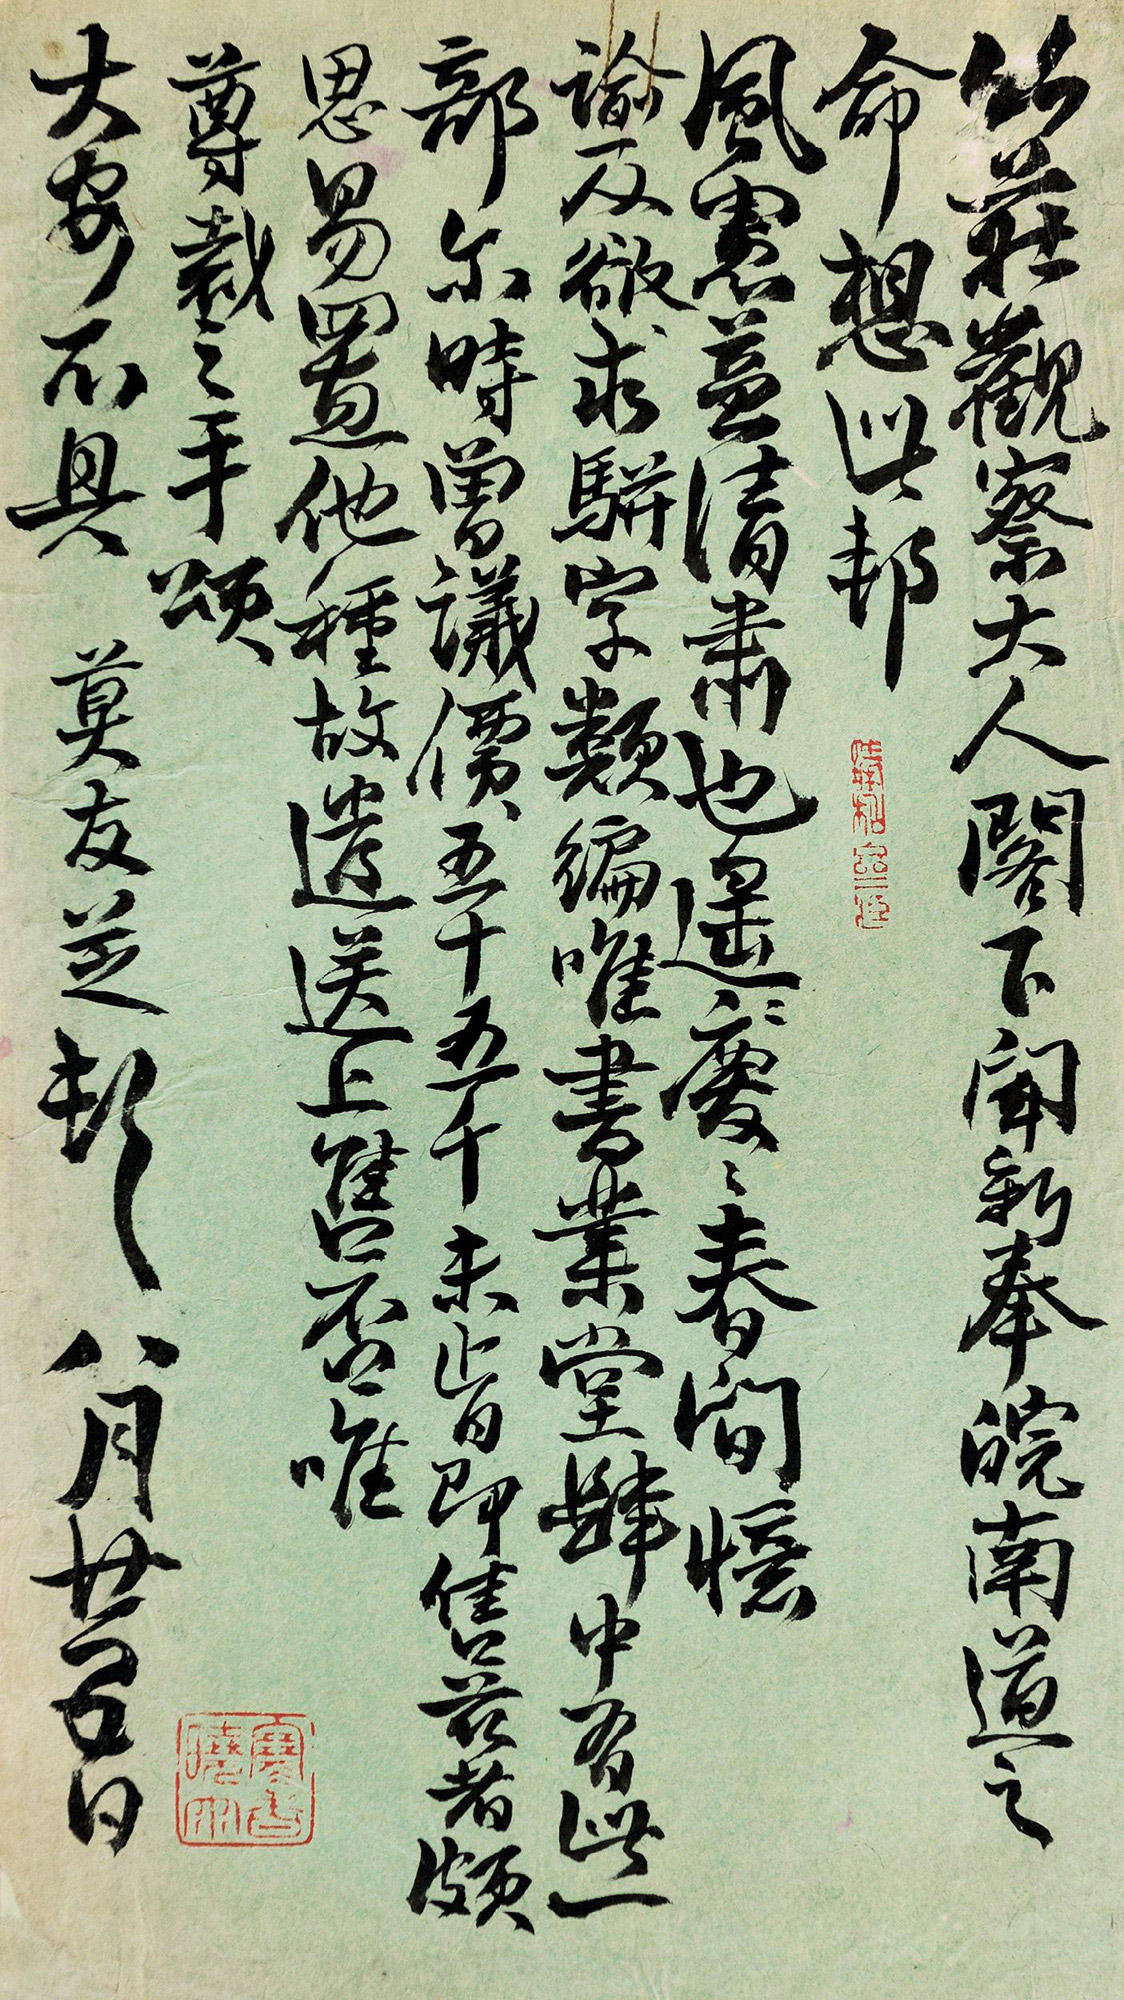 竹莊觀察大人閣下聞新奉皖南道之
命想此邦
風憲益清肅也遥遥慶慶春間憶
諭及欲求駢字類編唯書業堂肆中有此一
部尔時曾議價五十五千未肯即售茲者頗
思易置他種故遣送上售否唯
尊裁之手頌
大安不具 莫友芝頓 八月廿五日